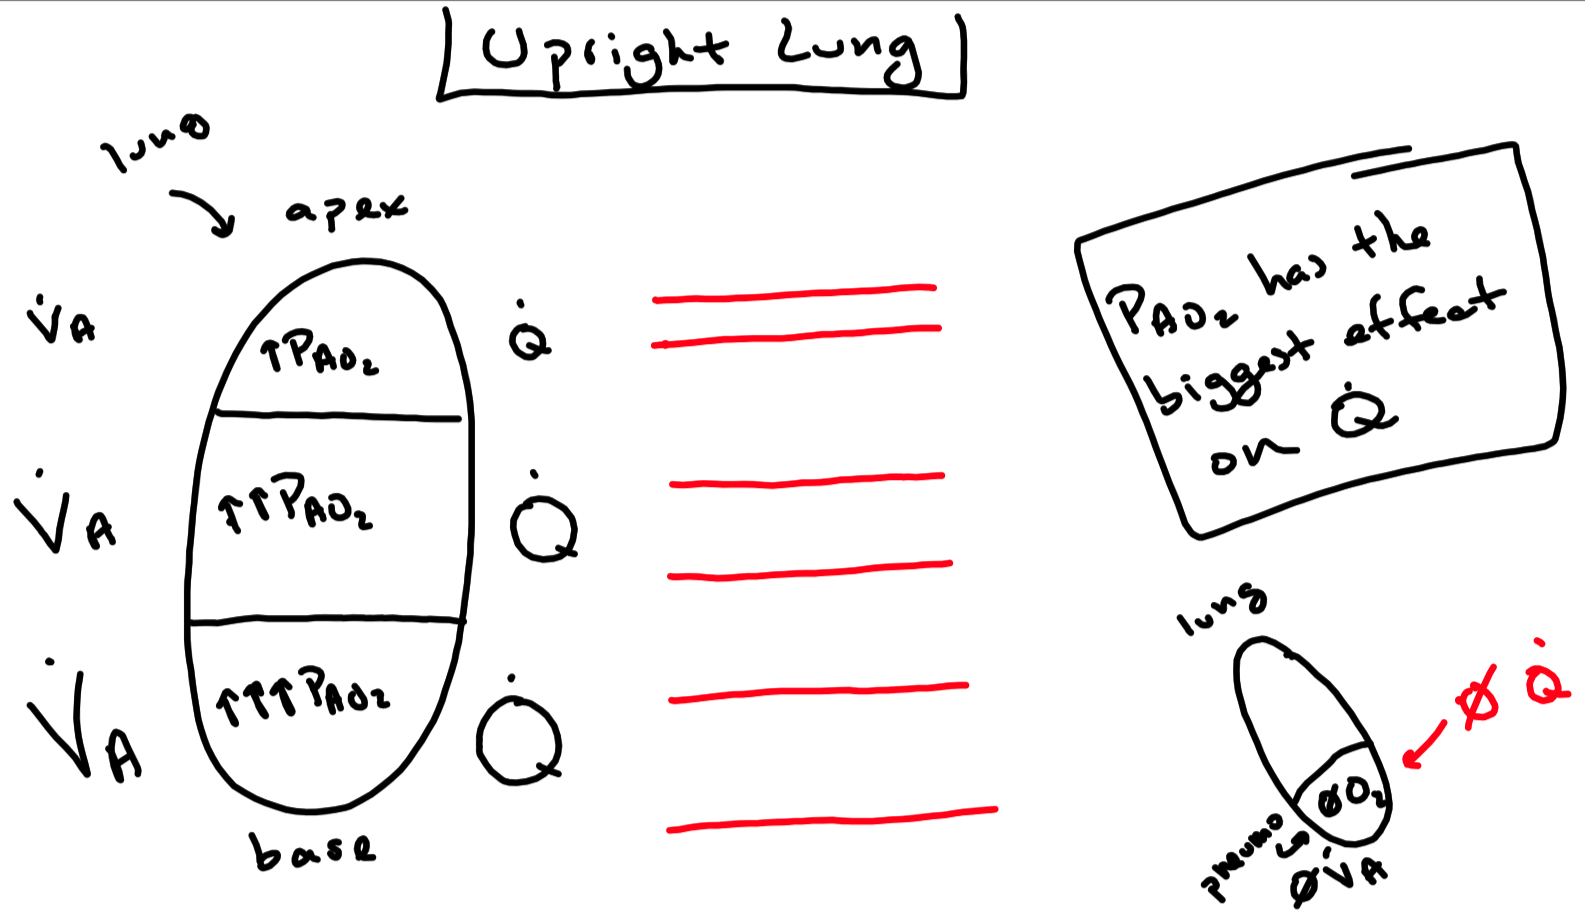 Upright Lung
lung
apex
V̇A
↑PAO₂
Q̇
V̇A
↑↑PAO₂
Q̇
V̇A
↑↑↑PAO₂
Q̇
base
PAO₂ has the
biggest effect
on Q̇
lung
Ø Q̇
ØO₂
pneumo
ØV̇A